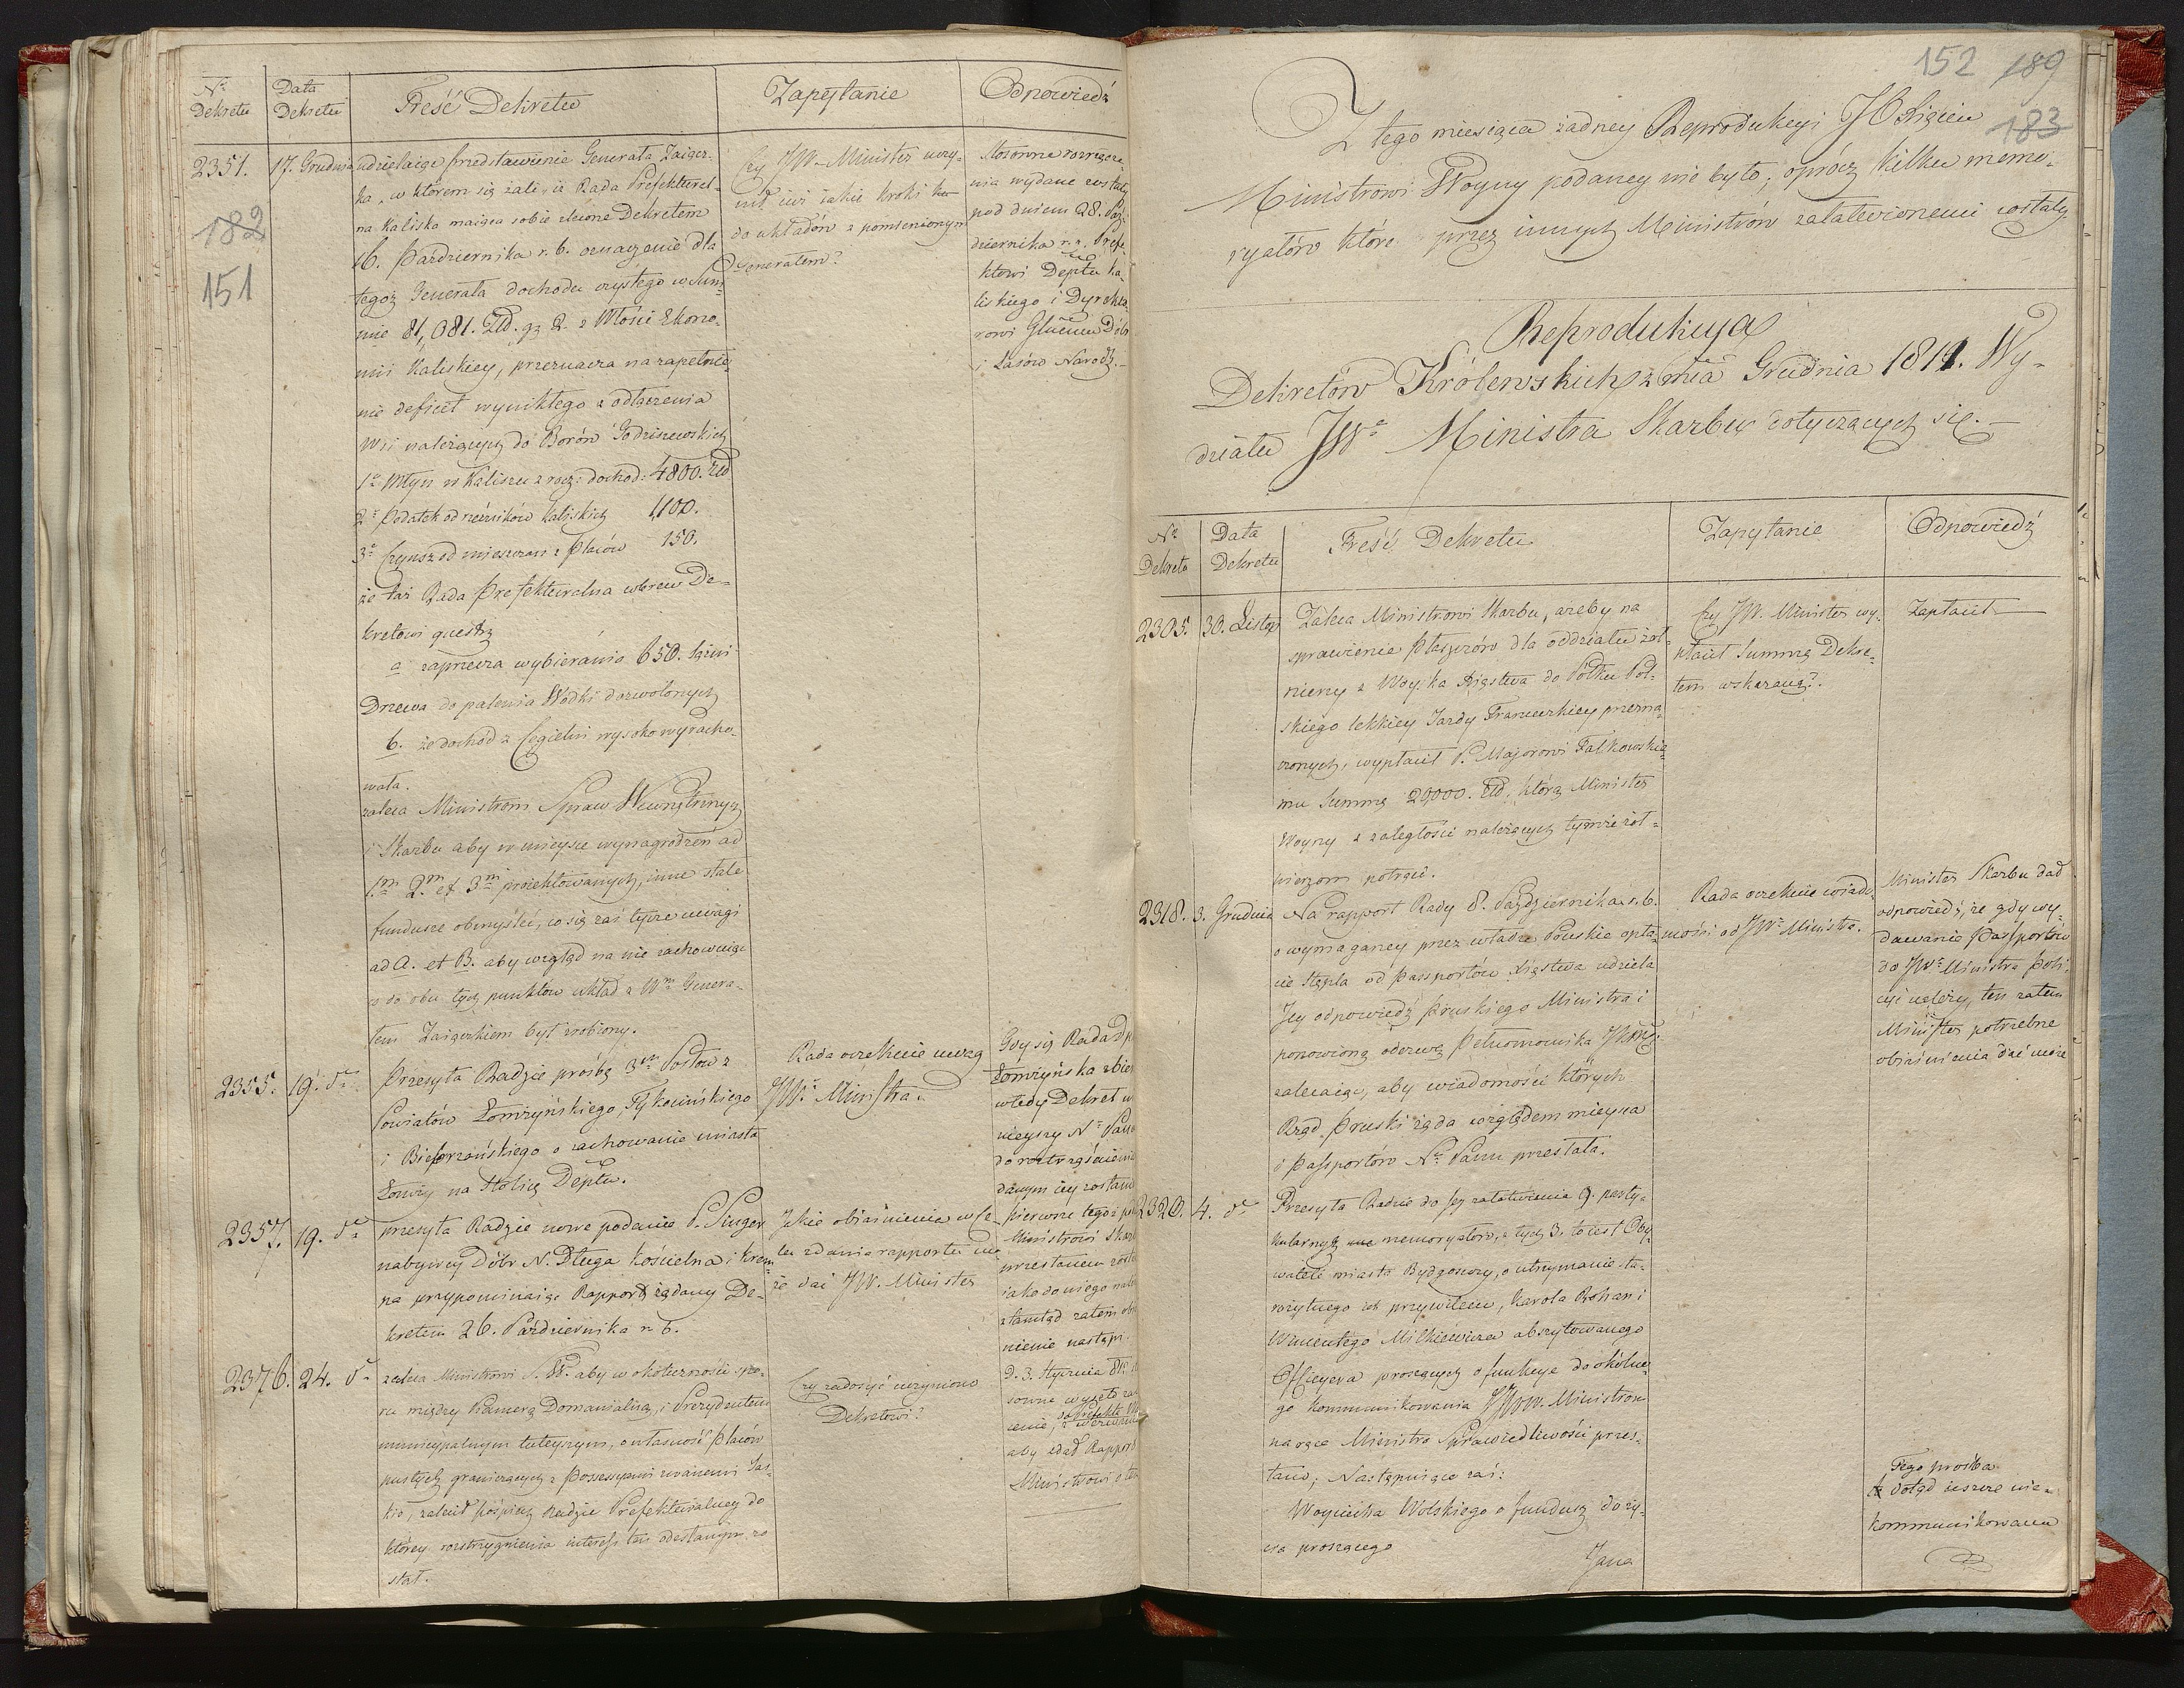 Nº Dekretu | Data Dekretu | Treść Dekretu | Zapytanie | Odpowiedź
182
151
2351. 17. Grudnia udzielaiąc przedstawienie Generała Zaiącz-
ka, w którem się żali, iż Rada Prefektural-
na Kaliska maiąca sobie zlecone Dekretem
16. Października r. b. oznaczenie dla
tegoż Generała dochodu czystego w Sum-
mie 81,081. Złd. gr 2. z Włości Ekono-
mii Kaliskiey, przeznacza na zapełnie-
nie deficit wynikłego z odłączenia
Wsi należących do Borów Godziszewskich
1º Młyn w Kaliszu z rocz: dochod: 4800. Złd
2º Podatek od rzeźników Kaliskich 1,100.
3º Czynsz od mieszczan z Placów 150.
że taż Rada Prefekturalna wbrew De-
kretowi
a zaprzecza wybierania 650. Sążni
Drzewa do palenia Wódki dozwolonych
b. że dochód z Cegielni wysoko wyracho-
wała.
zaleca Ministrom Spraw Wewnętrznych
i Skarbu aby w mieysce wynagrodzeń ad
1m 2m et 3m proiektowanych, inne stałe
fundusze obmyślić, co się zaś tycze uwagi
ad a. et B. aby wzgląd na nie zachowuiąc
co do obu tych punktów układ z Wm Genera-
łem Zaiączkiem był zrobiony.
Czy JW. Minister uczy-
nił iuż iakie kroki ku
do układów z pomienionym
Generałem?
Stosowne rozrządze-
nia wydane zostały
pod dniem 28. Paź-
dziernika r. z. Prefe-
ktowi Deptu Ka-
liskiego i Dyrekto-
rowi Głłnemu Dóbr
i Lasów Narod:
2355. 19. do Przesyła Radzie prośbę 3ch Posłów z
Powiatów Łomżyńskiego, Tykocińskiego
i Biebrzańskiego o zachowanie miasta
Łomży na Stolicę Deptu.
Rada oczekuie uwag
JWo Ministra.
Gdy się Rada Dp
Łomżyńska zbier
wtedy Dekret
nieyszy No Pana
do roztrząśnienia
danym iey zostanie
2357. 19. do przesyła Radzie nowe podanie P. Singer
nabywcy Dóbr N. Długa Kościelna i Krem-
pa przypominaiąc Rapport żądany De-
kretem 26. Października r. b.
Jakie obiaśnienie w ce-
lu zdania rapportu mo-
że dać JW. Minister
pierwsze tegoż
Ministrowi Skarb
przesłanem zosta
iako do niego nale
ztamtąd zatem obia
nienie nastąpi.
2376. 24. do zaleca Ministrowi S. W. aby w okoliczności spo-
ru między Kamerą Domanialną, i Prezydentem
municypalnym tuteyszym, o własność Placów
pustych graniczących z Possessyami zwanemi Sas-
kie, zalecił pośpiech Radzie Prefekturalney do
którey rozstrzygnienia interess ten odesłanym zo-
stał.
Czy zadosyć uczyniono
Dekretowi?
D. 3. Stycznia 812.
sowne wyszło
cenie,
aby zdał Rapport
Ministrowi
152 189
183
Z tego miesiąca żadney Reprodukcyi JO Xięciu
Ministrowi Woyny podaney nie było; oprócz kilku memo-
ryałów które przez innych Ministrów załatwionemi zostały
Reprodukcya
Dekretów Królewskich z mca Grudnia 1811. Wy-
działu JWo Ministra Skarbu dotyczących się.
No Dekretu | Data Dekretu | Treść Dekretu | Zapytanie | Odpowiedź
2305. 30. Listop Zaleca Ministrowi Skarbu, ażeby na
sprawienie Płaszczów dla oddziału żoł-
nierzy z Woyska Xięstwa do Półku Pol-
skiego lekkiey Jazdy Francuzkiey przezna-
czonych, wypłacił P. Majorowi Falkowskie-
mu Summę 29,000. Złd. którą Minister
Woyny z zaległości należących tymże żoł-
nierzom potrąci.
Czy JW. Minister wy-
płacił Summę Dekre-
tem wskazaną?
Zapłacił
2318. 3. Grudnia Na rapport Rady 8. Października r. b.
o wymaganey przez władze Pruskie opła-
cie Stępla od Passportów Xięstwa udziela
Jey odpowiedź Pruskiego Ministra i
ponowioną odezwę Pełnomocnika JKMci
zalecaiąc, aby wiadomości których
Rząd Pruski żąda względem mieysca
i Passportów No Panu przesłała.
Rada oczekuie wiado-
mości od JWo Ministra.
Minister Skarbu dał
odpowiedź, że gdy wy-
dawanie Passportów
do JWo Ministra Poli-
cyi należy, ten zatem
Minister potrzebne
obiaśnienia dać może
2320. 4. do Przesyła Radzie do Jey załatwienia 9. party-
kularnych memoryałów, z tych 3. to iest Oby-
watele miasta Bydgoszczy, o utrzymanie sta-
rożytnego ich przywileiu, Karola Rohan i
Wincentego Milkiewicza abszytowanego
Officyera proszących o funkcye do okólne-
go kommunikowania JWW. Ministrom
na ręce Ministra Sprawiedliwości przes-
łano; Następuiące zaś:
Woyciecha Wolskiego o fundusz do ży-
cia proszącego
Jana
Tego prośba
dotąd ieszcze nie
kommunikowana